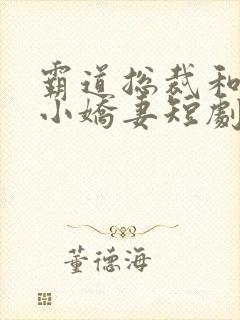 霸道总裁和
小嬌妻短劇
董德海